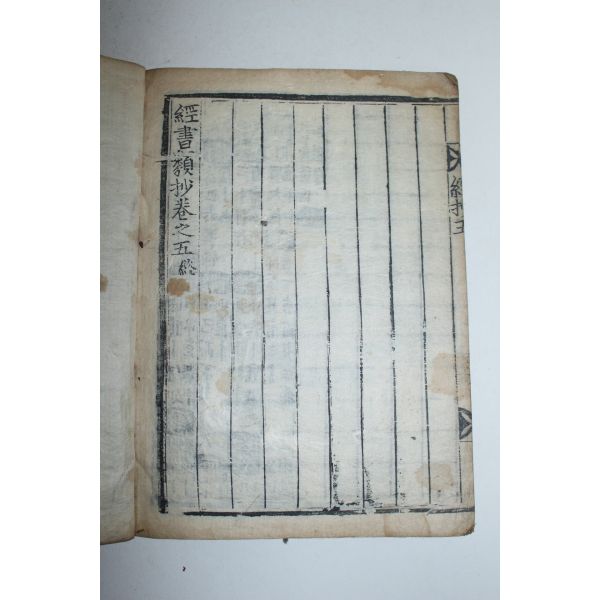 經抄五
經書類抄卷之五終